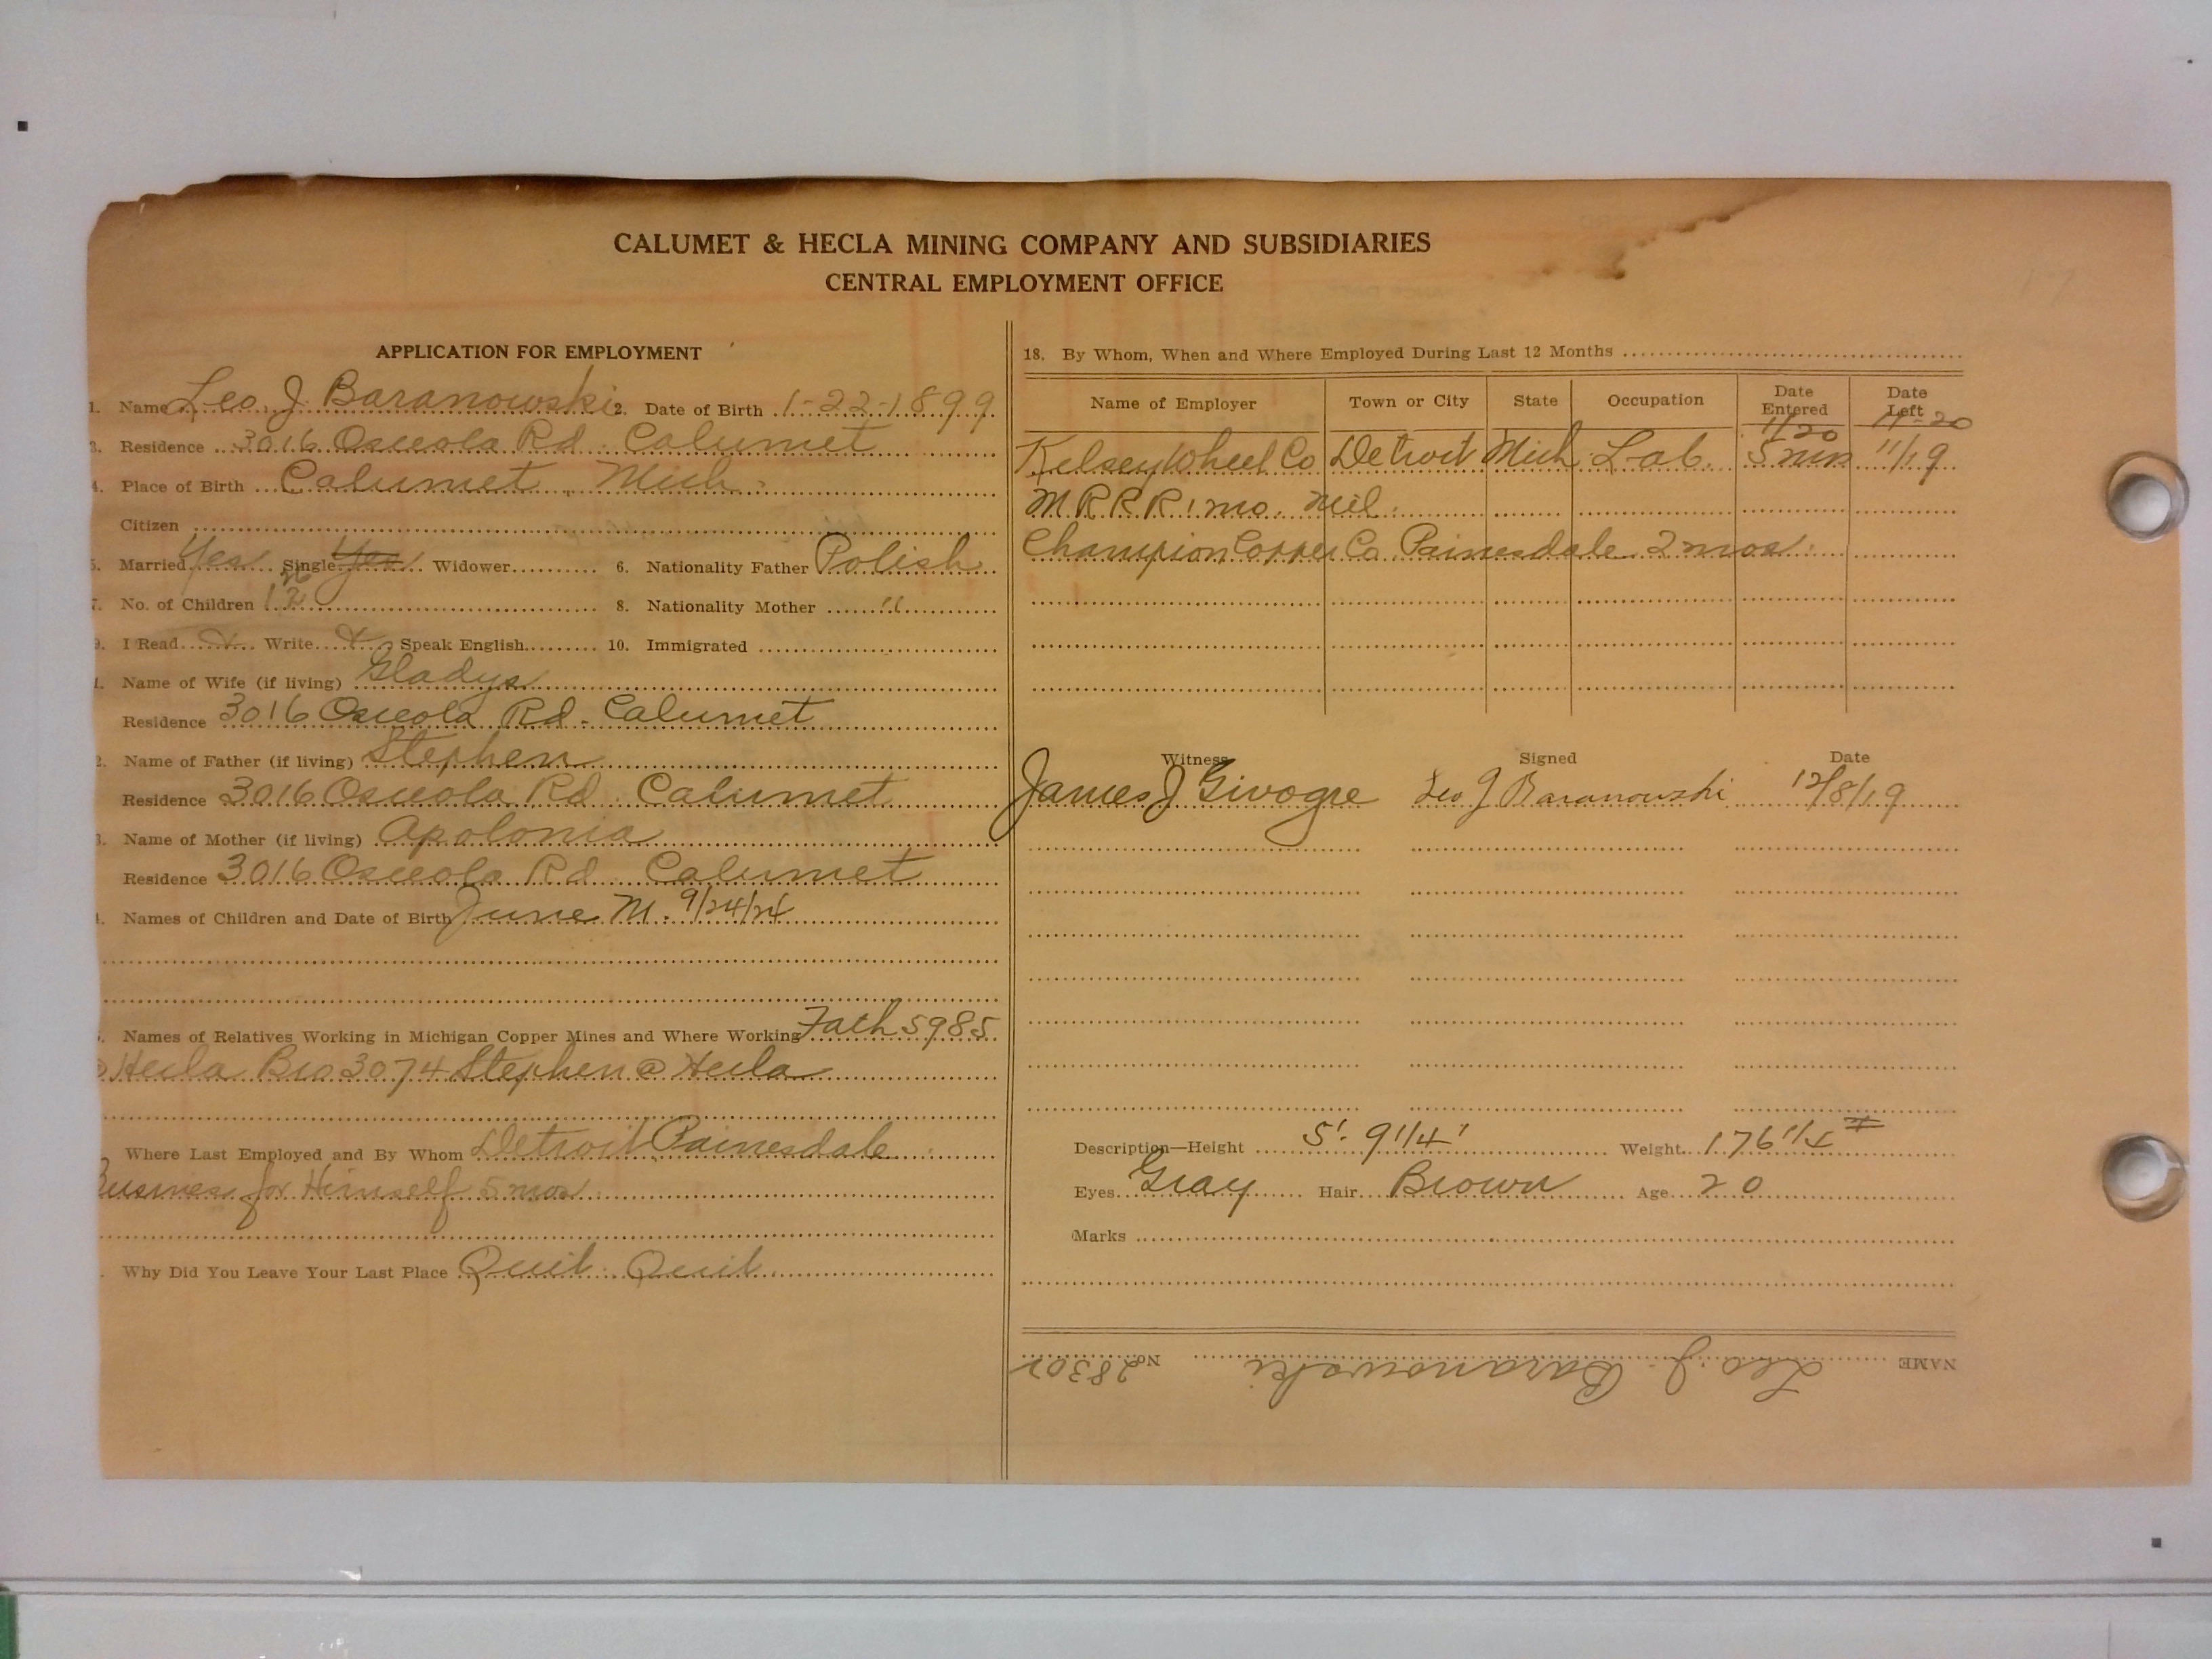 CALUMET & HECLA MINING COMPANY AND SUBSIDIARIES
CENTRAL EMPLOYMENT OFFICE
APPLICATION FOR EMPLOYMENT
1. Name Leo. J. Baranowski 2. Date of Birth 1-22-1899
3. Residence 3016 Osceola Rd. Calumet
4. Place of Birth Calumet, Mich.
Citizen
5. Married Yes Single Yes Widower 6. Nationality Father Polish
7. No. of Children 1 2 8. Nationality Mother "
9. I Read x Write x Speak English 10. Immigrated
1. Name of Wife (if living) Gladys
Residence 3016 Osceola Rd. Calumet
2. Name of Father (if living) Stephen
Residence 3016 Osceola Rd. Calumet
3. Name of Mother (if living) Apolonia
Residence 3016 Osceola Rd. Calumet
Names of Children and Date of Birth June M. 9/24/24
Names of Relatives Working in Michigan Copper Mines and Where Working Fath 5985
@ Hecla Bro 3074 Stephen @ Hecla
Where Last Employed and By Whom Detroit Painesdale
Business for Himself 5 mos
Why Did You Leave Your Last Place Quit. Quit
18. By Whom, When and Where Employed During Last 12 Months
Name of Employer Town or City State Occupation Date Entered Date Left
1/20 11-20
Kelsey Wheel Co Detroit Mich. Lab. 5 mos 11/19
M R R R 1 mo. Mil.
Champion Copper Co Painesdale 2 mos.
Witness Signed Date
James J Givogre Leo J Baranowski 12/8/19
Description—Height 5'. 9 1/4' Weight 176 1/4 #
Eyes Gray Hair Brown Age 20
Marks
NAME Leo J. Baranowski No. 28302